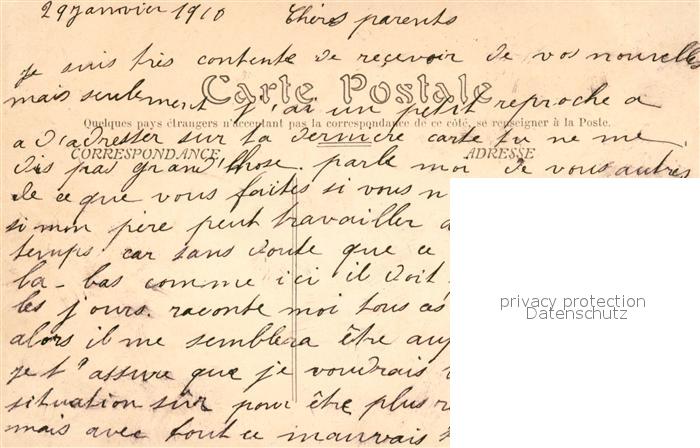 29 janvier 1910 Chers parents
je suis très contente de reçevoir de vos nouvelles
Carte Postale
mais seulement j'ai un petit reproche a
Quelques pays étrangers n'acceptant pas la correspondance de ce côté, se renseigner à la Poste.
a t'adresser sur ta dernière carte tu ne me
CORRESPONDANCE ADRESSE
dis pas grand'chose. parle moi de vous autres
de ce que vous faites si vous n
si mon père peut travailler
temps car sans doute que ce
la-bas comme ici il doit
les jours. raconte moi tous ces
privacy protection
Datenschutz
alors il me semblera être
je t'assure que je voudrais
situation sûr pour être plus
mais avec tout ce mauvais